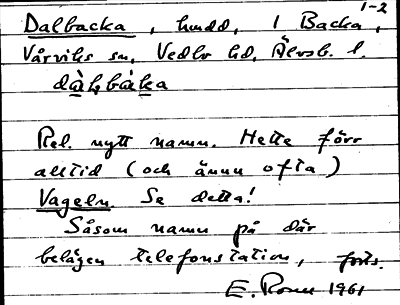 1-2
Dalbacka, hmdd, 1 Backa,
Vårviks sn, Vedbo hd, Älvsb. l.
dàl,bàka
Rel. nytt namn. Hette förr
alltid (och ännu ofta)
Vageln. Se detta!
Såsom namn på där
belägen telefonstation, forts.
E. Rosen 1961